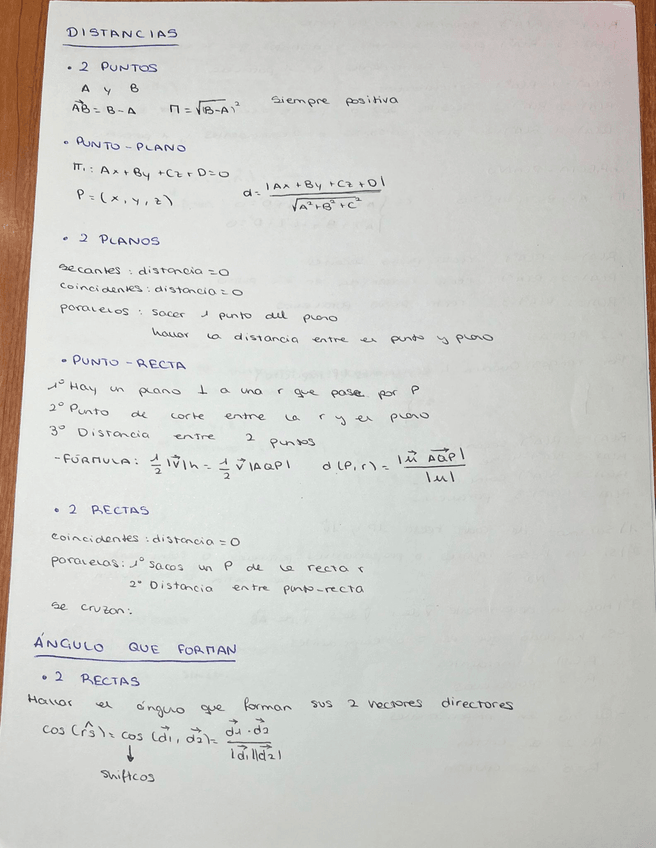 DISTANCIAS
• 2 PUNTOS
A y B
AB⃗ = B - A    M = √(B-A)²    siempre positiva
• PUNTO - PLANO
π₁: Ax + By + Cz + D = 0
P = (x, y, z)    d = |Ax + By + Cz + D| / √A² + B² + C²
• 2 PLANOS
secantes : distancia = 0
coincidentes : distancia = 0
paralelos : sacar 1 punto del plano
hallar la distancia entre el punto y plano
• PUNTO - RECTA
1º Hay un plano ⊥ a una r que pase por P
2º Punto de corte entre la r y el plano
3º Distancia entre 2 puntos
- FÓRMULA: 1/2 |v⃗| h = 1/2 v⃗ |AQP|    d (P, r) = |u⃗ AQP⃗| / |u|
• 2 RECTAS
coincidentes : distancia = 0
paralelas : 1º sacas un P de la recta r
2º Distancia entre punto-recta
se cruzan :
ÁNGULO QUE FORMAN
• 2 RECTAS
Hallar el ángulo que forman sus 2 vectores directores
cos (r̂s) = cos (d₁⃗, d₂⃗) = d₁⃗ · d₂⃗ / |d₁⃗||d₂⃗|
↓
shiftcos